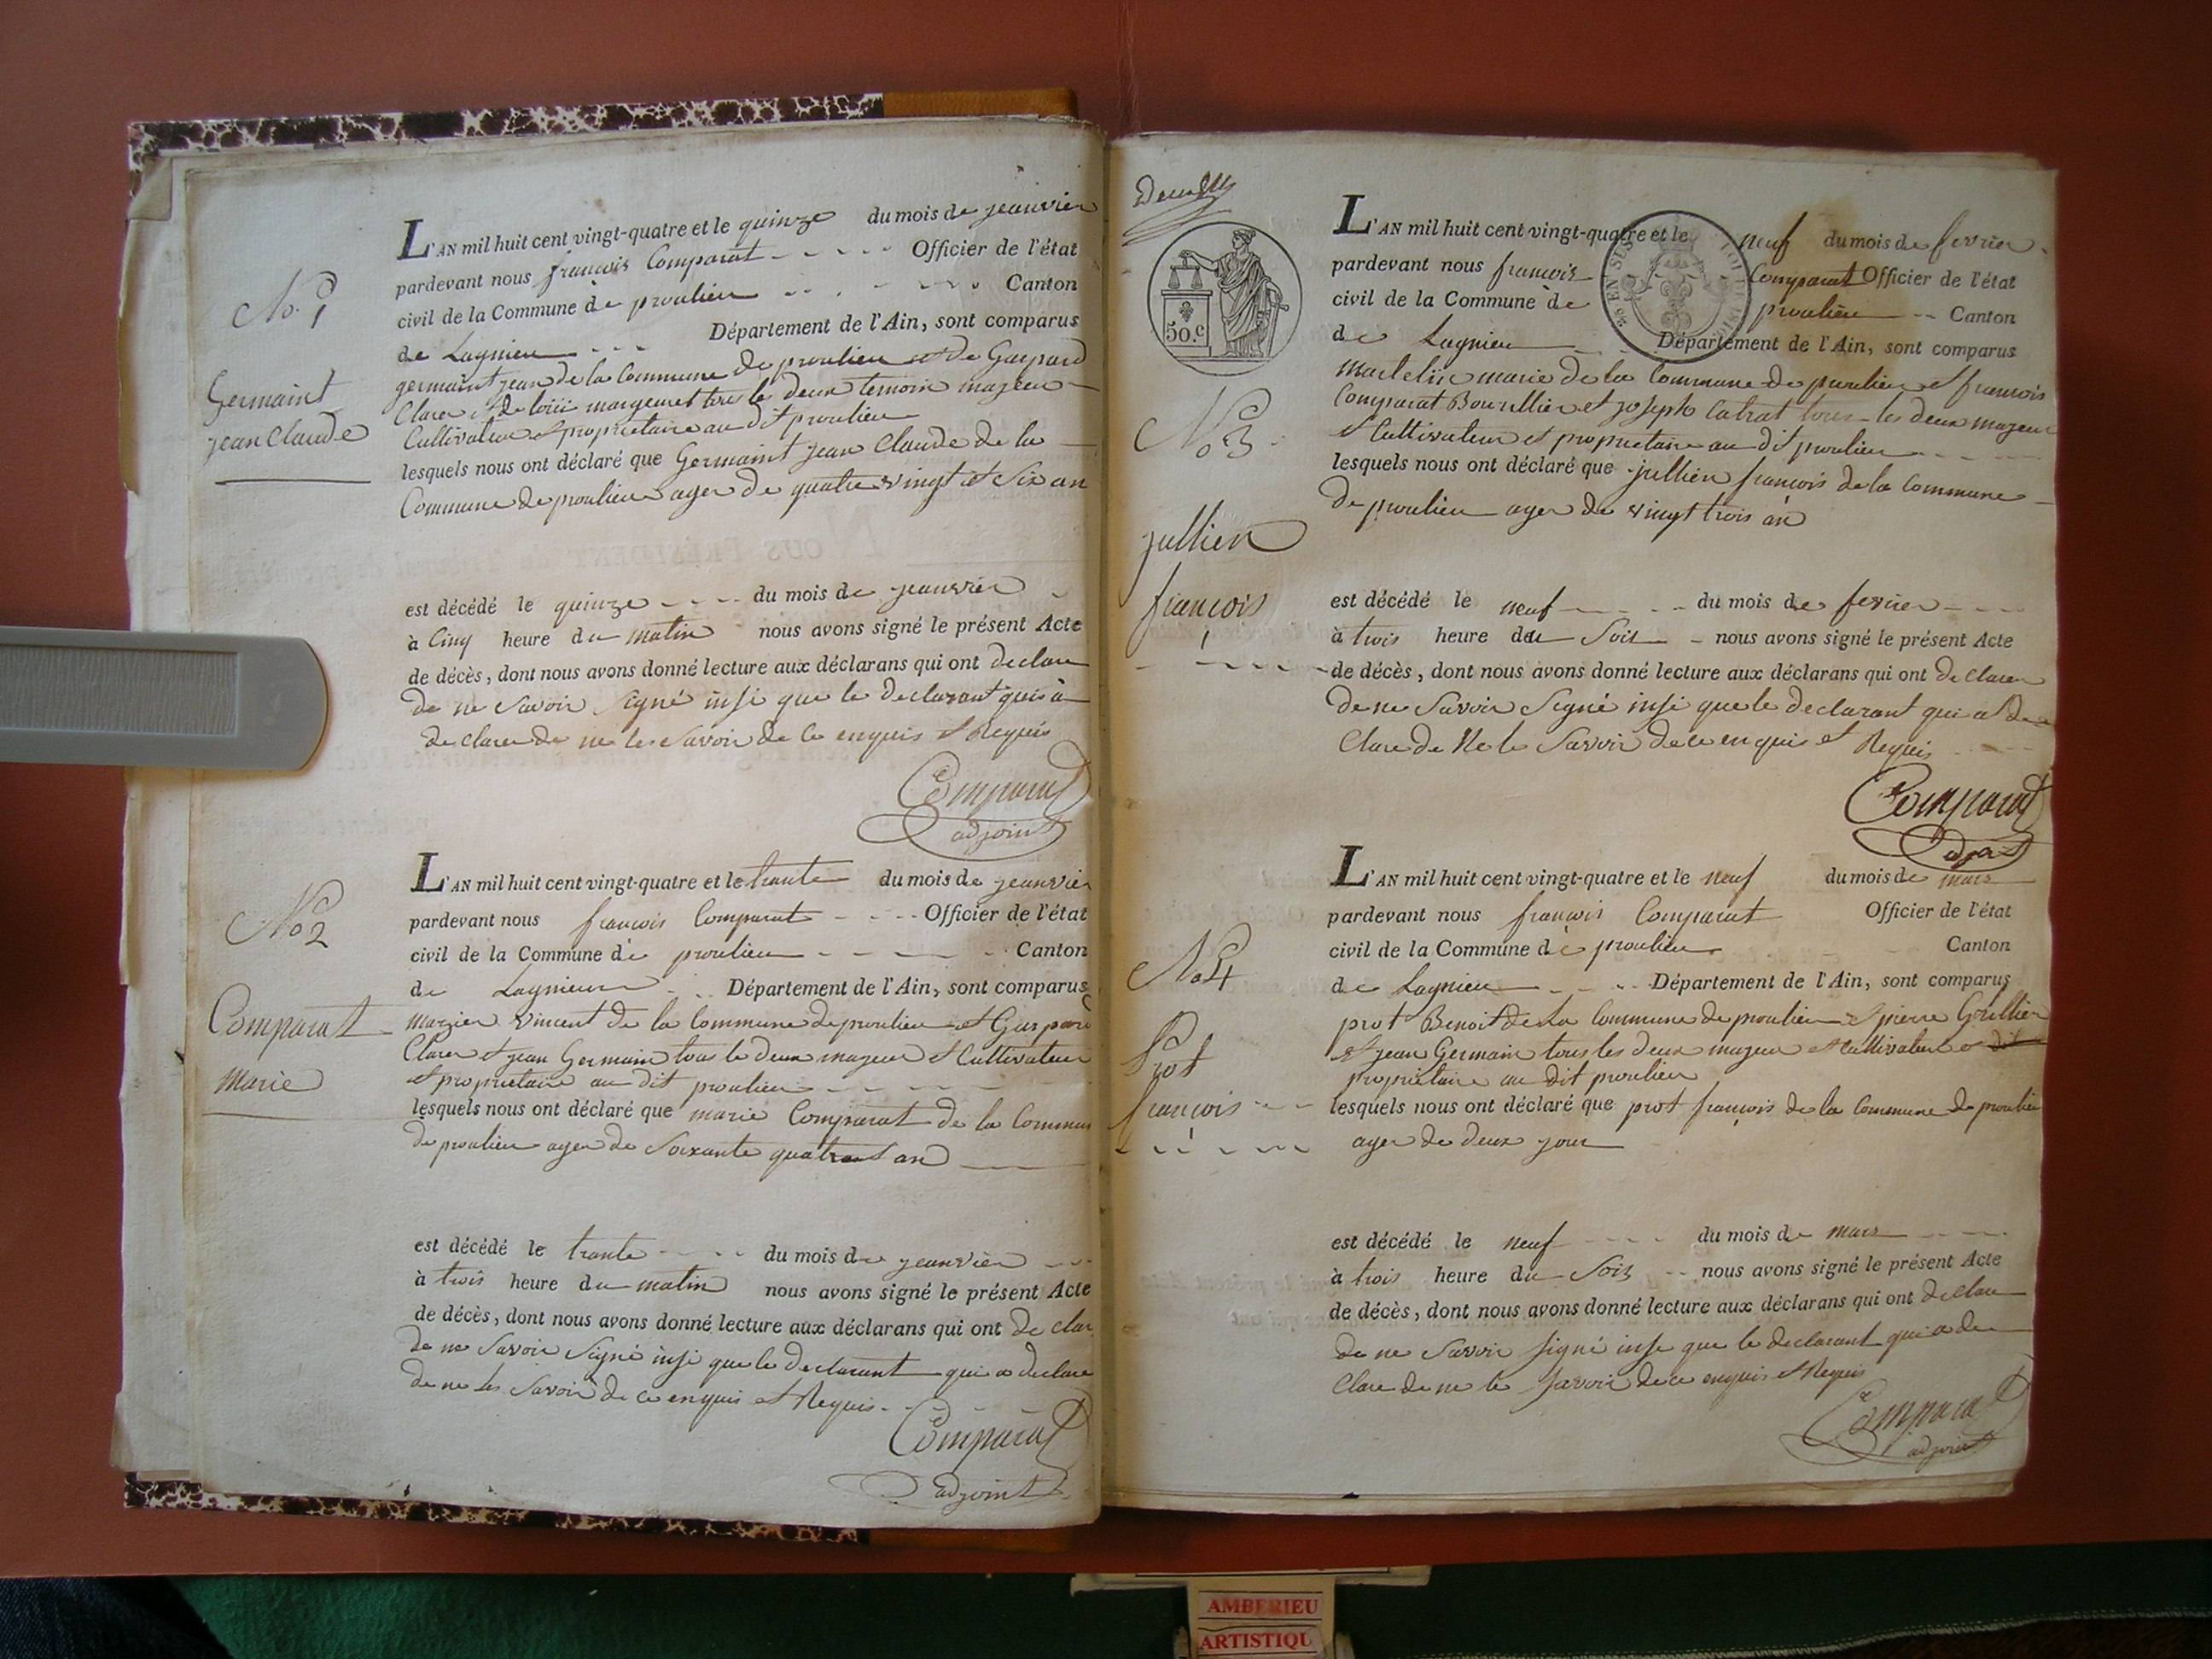 No. 1
Germaint
jean Claude
L'AN mil huit cent vingt-quatre et le quinze du mois de jeanvier
pardevant nous francois Comparat Officier de l'état
civil de la Commune de proulieu Canton
de Lagnieu Département de l'Ain, sont comparus
germaint jean de la Commune de proulieu et de Gaspard
Clarer et de margeuret tous les deux temoin mageur
Cultivateur et proprietaire au dit proulieu
lesquels nous ont déclaré que Germaint jean Claude de la
Commune de proulieu ager de quatre vingt et Six an
est décédé le quinze du mois de jeanvier
à Cinq heure du matin nous avons signé le présent Acte
de décès, dont nous avons donné lecture aux déclarans qui ont declare
de ne Savoir Signé insi que le declarant qui à
declare de ne les Savoir de ce enquis et Requis
Comparat
adjoint
No 2
Comparat
Marie
L'AN mil huit cent vingt-quatre et le trante du mois de jeanvier
pardevant nous francois Comparat Officier de l'état
civil de la Commune de proulieu Canton
de Lagnieu Département de l'Ain, sont comparus
Mazier Vincent de la Commune de proulieu et Gaspard
Clarer et jean Germain tous le deux mageur et Cultivateur
et proprietaire au dit proulieu
lesquels nous ont déclaré que marie Comparat de la Commune
de proulieu ager de Soixante quatre an
est décédé le trante du mois de jeanvier
à trois heure du matin nous avons signé le présent Acte
de décès, dont nous avons donné lecture aux déclarans qui ont de clar
de ne Savoir Signé insi que le declarant qui a declare
de ne les Savoir de ce enquis et Requis
Comparat
adjoint
50.c
No 3
jullien
francois
L'AN mil huit cent vingt-quatre et le neuf du mois de fevrier
pardevant nous francois Comparat Officier de l'état
civil de la Commune de proulieu Canton
de Lagnieu Département de l'Ain, sont comparus
marie de la Commune de proulieu et francois
Comparat Bourllier et joseph Catrat tous les deux mageur
et Cultivateur et proprietaire au dit proulieu
lesquels nous ont déclaré que jullien francois de la Commune
de proulieu ager de vingt trois an
est décédé le neuf du mois de fevrier
à trois heure du Soir nous avons signé le présent Acte
de décès, dont nous avons donné lecture aux déclarans qui ont de Clarer
de ne Savoir Signé insi que le declarant qui a De
Clare de Ne le Savoir de ce enquis et Requis
Comparat
No 4
Prot
francois
L'AN mil huit cent vingt-quatre et le neuf du mois de mars
pardevant nous francois Comparat Officier de l'état
civil de la Commune de proulieu Canton
de Lagnieu Département de l'Ain, sont comparus
prot Benoit de La Commune de proulieu et pierre Grillier
et jean Germain tous les deux mageur et Cultivateur et
proprietaire au dit proulieu
lesquels nous ont déclaré que prot francois de la Commune de proulieu
ager de deux jour
est décédé le neuf du mois de mars
à trois heure du Soir nous avons signé le présent Acte
de décès, dont nous avons donné lecture aux déclarans qui ont declare
de ne Savoir signé inse que le declarant qui a de
Clare de ne le Savoir de ce enquis et Requis
Comparat
adjoint
AMBERIEU
ARTISTIQU